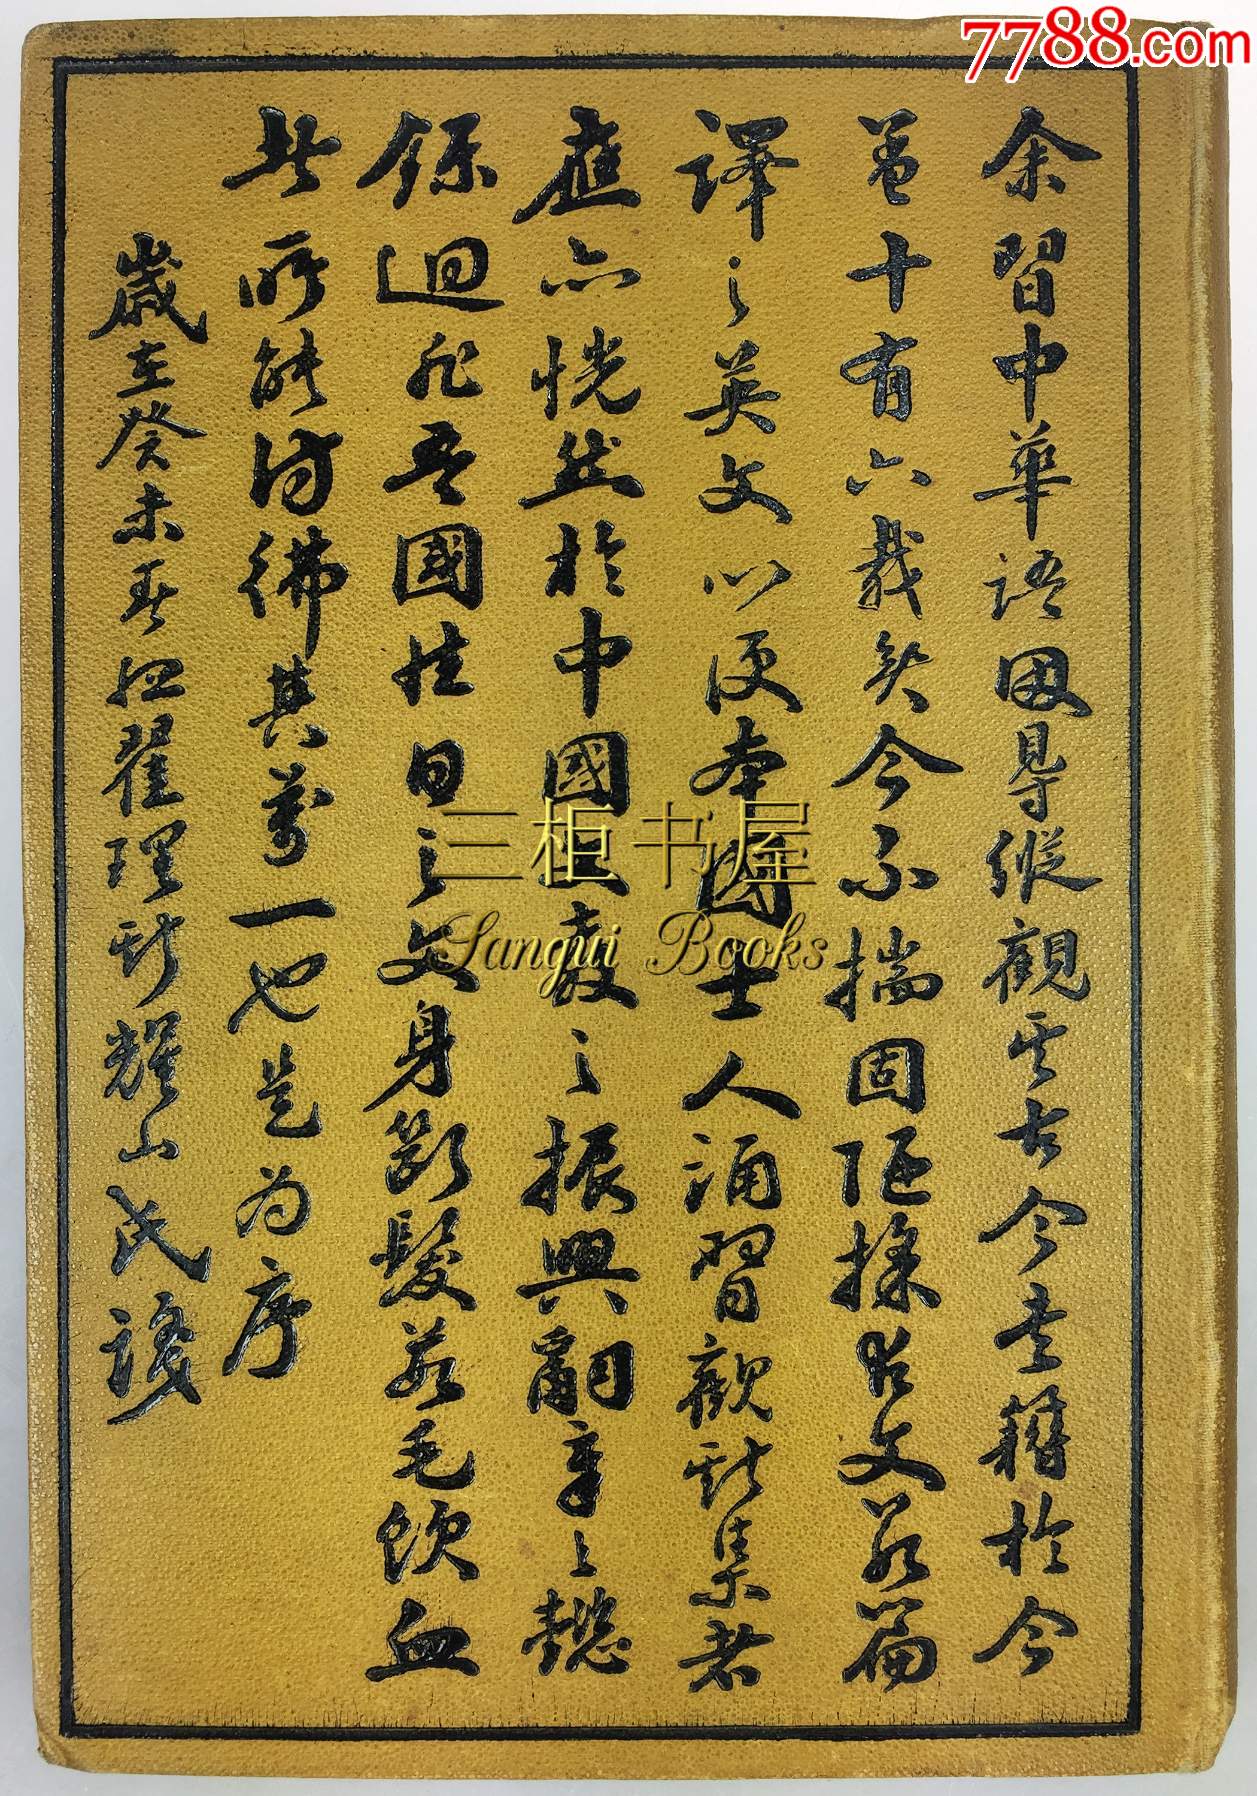 余習中華語因得縱觀其古今書籍於今
蓋十有六載矣今不揣固陋採古文若篇
譯之英文以便本國士人誦習觀斯集者
應亦恍然於中國文教之振興辭章之懿
鑠迴非吾國往日之文身斷髮茹毛飲血
者所能彷彿其萬一也是為序
歲在癸未春翟理斯耀山氏識
三柜书屋
Sangui Books
7788.com